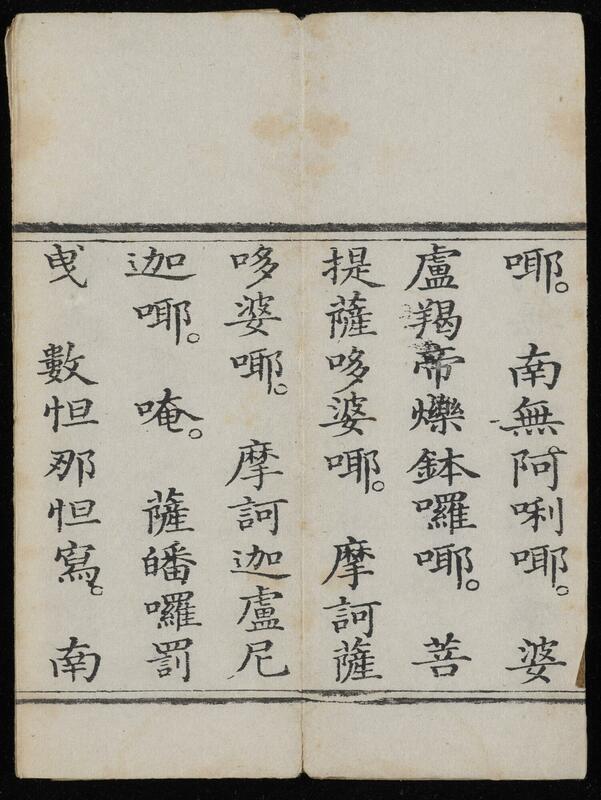 哪。　南無。阿唎哪。　婆
盧羯帝爍鉢囉哪。　菩
提薩哆婆哪。　摩訶薩
哆婆哪。　摩訶迦盧尼
迦哪。　唵。　薩皤囉罰
曳　數怛那怛寫。　南